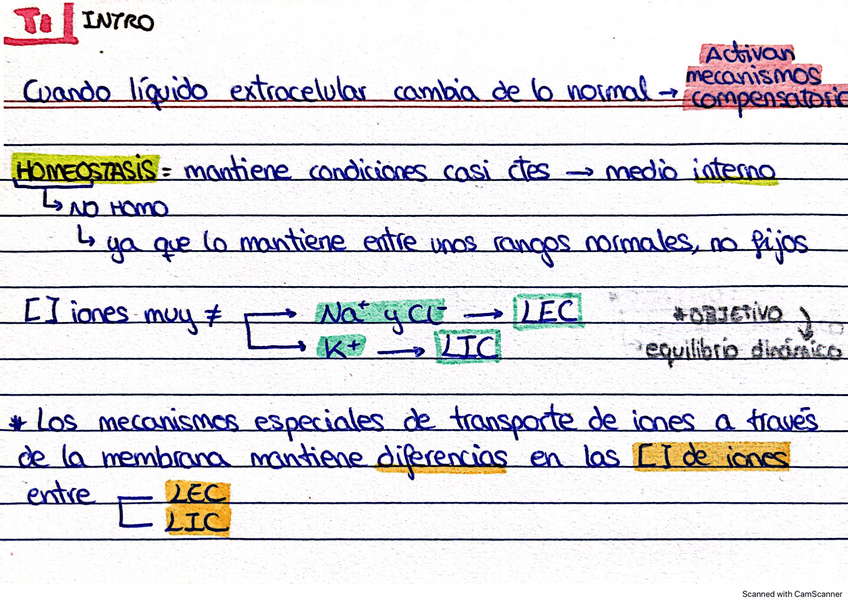 T1 INTRO
Activan
mecanismos
Cuando líquido extracelular cambia de lo normal → compensatorio
HOMEOSTASIS = mantiene condiciones casi ctes → medio interno
↳ NO HOMO
↳ ya que lo mantiene entre unos rangos normales, no fijos
[] iones muy ≠ → Na⁺ y Cl⁻ → LEC
* OBJETIVO
→ K⁺ → LIC
equilibrio dinámico
* Los mecanismos especiales de transporte de iones a través
de la membrana mantiene diferencias en las [] de iones
entre LEC
LIC
Scanned with CamScanner